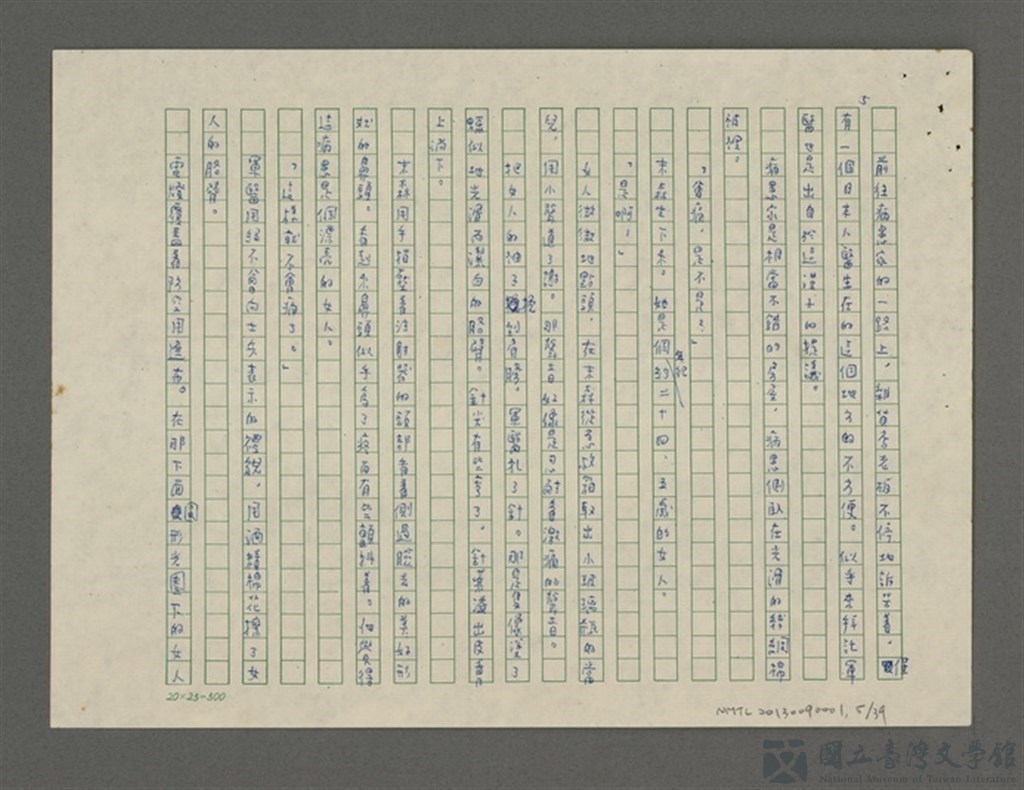 5
前往病患家的一路上，雜貨店老板不停地訴苦著，僅
有一個日本人醫生在的這個地方的不方便。似乎來拜託軍
醫也是出自於這漢子的提議。
病患家是相當不錯的房屋。病患側臥在光滑的綢棉
被裡。
「會痛，是不是？」
末森坐下來。她是個年紀約二十四、五歲的女人。
「是啊！」
女人微微地點頭。在末森從急救箱取出小玻璃瓶的當
兒，用小聲道了謝。那聲音好像是忍耐著激痛的聲音。
把女人的袖子捲到肩膀。軍醫扎了針。那是隻像浸了
蠟似地光滑而潔白的胳臂。針尖有些彎了。針藥溢出皮膚
上淌下。
末森用手指壓著注射器的頭部看著側過臉去的美好形
狀的鼻頭。看起來鼻頭似乎為了疼痛有些顫抖著。他覺得
這病患是個漂亮的女人。
「這樣就不會痛了。」
軍醫用絕不會向士兵表示的禮貌，用酒精棉花擦了女
人的胳臂。
電燈覆蓋著防空用遮布。在那下面成形光圈下的女人
20×25=500
NMTL 20130090001, 5/39
國立臺灣文學館
National Museum of Taiwan Literature